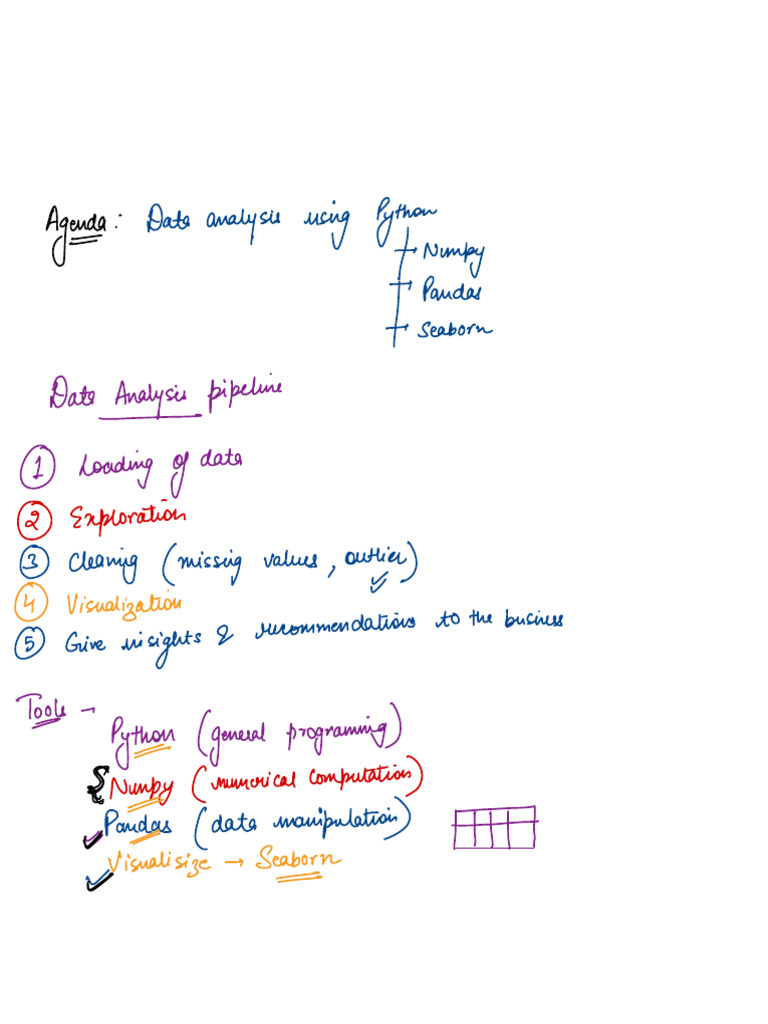 Agenda: Data analysis using Python
Numpy
Pandas
Seaborn
Data Analysis pipeline
1 Loading of data
2 Exploration
3 Cleaning (missing values, outlier)
4 Visualization
5 Give insights & recommendations to the business
Tools →
Python (general programing)
Numpy (numerical computation)
Pandas (data manipulation)
Visualisize → Seaborn